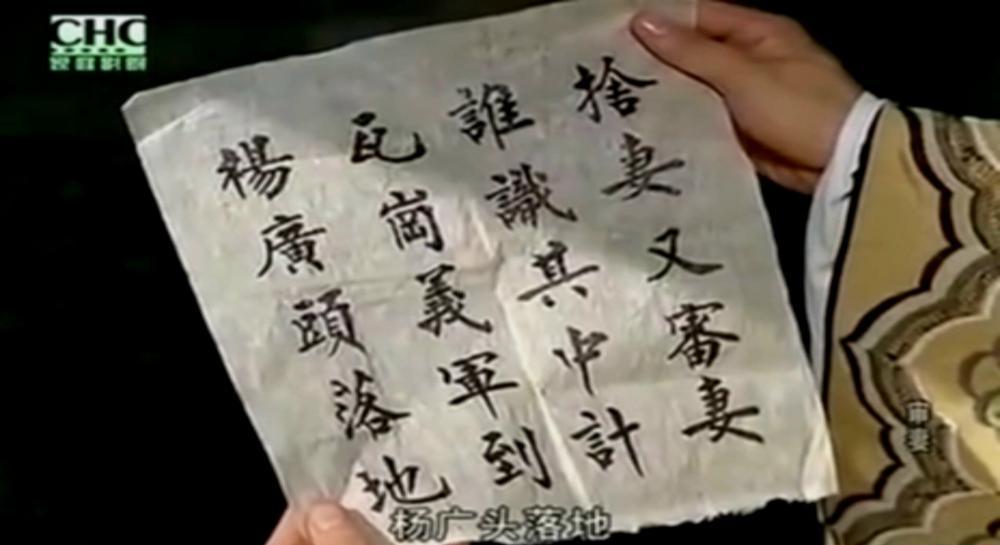 CHC
家庭影院
捨妻又審妻
誰識其中計
瓦崗義軍到
楊廣頭落地
審妻
杨广头落地